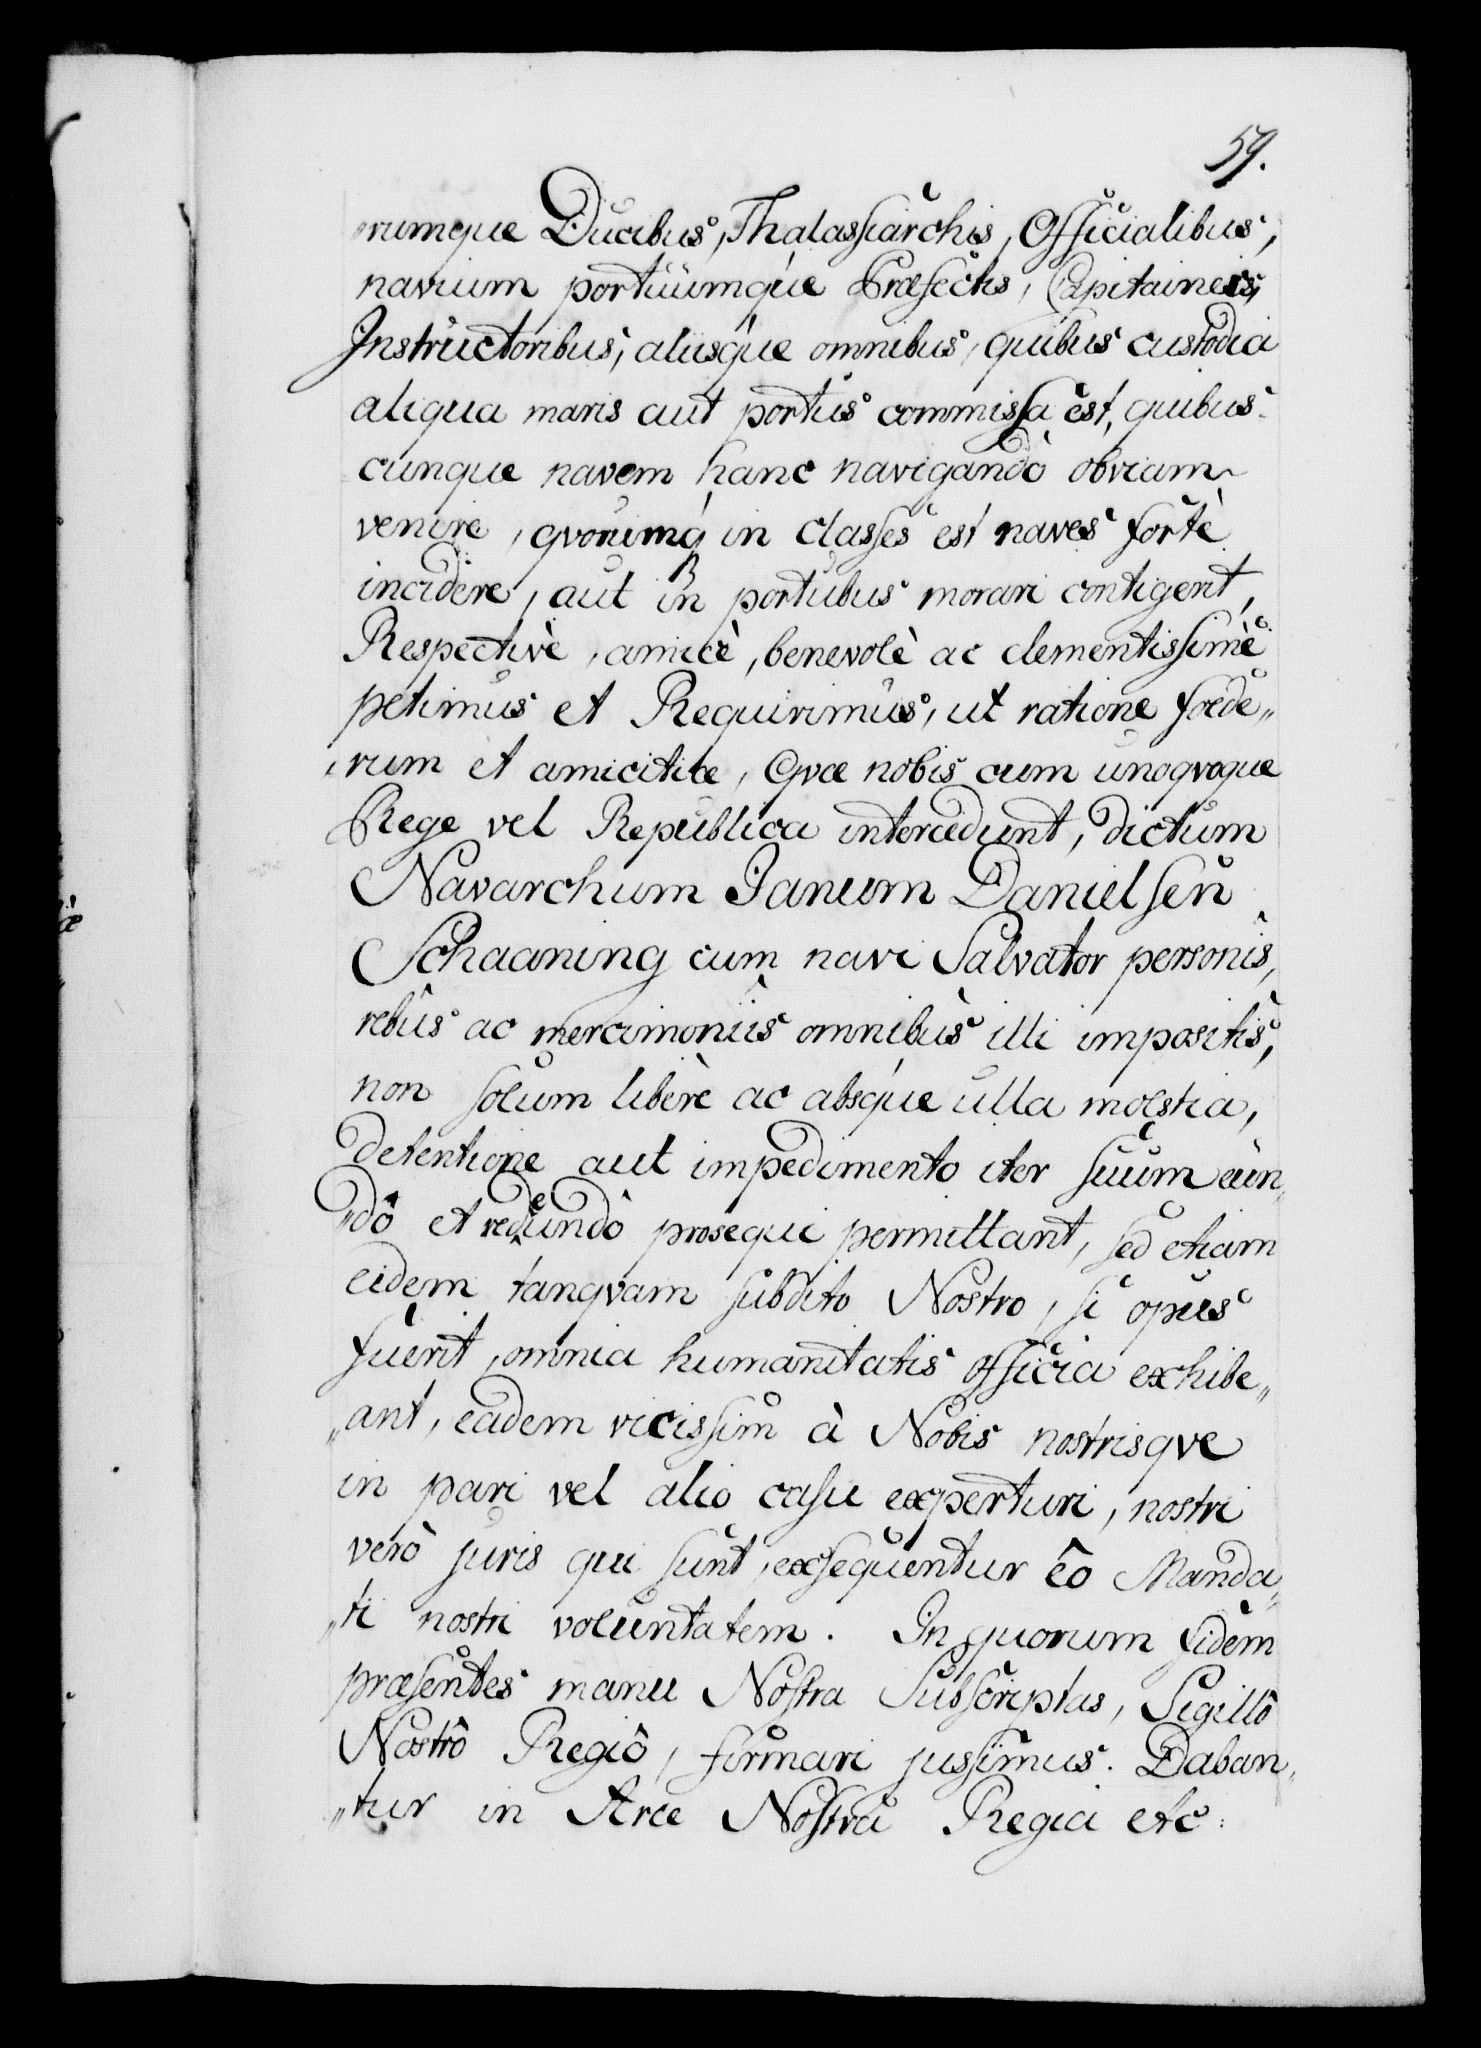 59.
„rumque Ducibus, Thalassiarchis, Officialibus,
navium portuumque Præfectis, Capitaineis,
Instructoribus, aliisque omnibus, quibus custodia
aliqua maris aut portus commissa est, quibus-
cunque navem hanc navigandò obviam
venire, qvorumq in classes est naves fortè
incidere, aut in portubus morari contigerit,
Respectivè, amicè, benevolè ac clementissimè
petimus et Requirimus, ut ratione foede„
„rum et amicitiæ, Qvæ nobis cum unoqvoque
Rege vel Republica intercedunt, dictum
Navarchum Janum Danielsen
Schaaning cum navi Salvator personis,
rebus ac mercimoniis omnibus illi impositis,
non solum liberè ac absque ulla molstia,
detentione aut impedimento iter suum eun„
„dô et redeundò prosequi permittant, sed etiam
eidem tanqvam subdito Nostro, si opus
fuerit, omnia humanitatis officia exhibe„
„ant, eadem vicissim à Nobis nostrisqve
in pari vel alio casu experturi, nostri
verò juris qui sunt, exsequentur eô Manda„
„ti nostri voluntatem. In quorum fidem
præsentes manu Nostra Subscriptas, Sigillô
Nostrô Regiô, firmari jussimus. Daban„
„tur in Arce Nostra Regia etc: